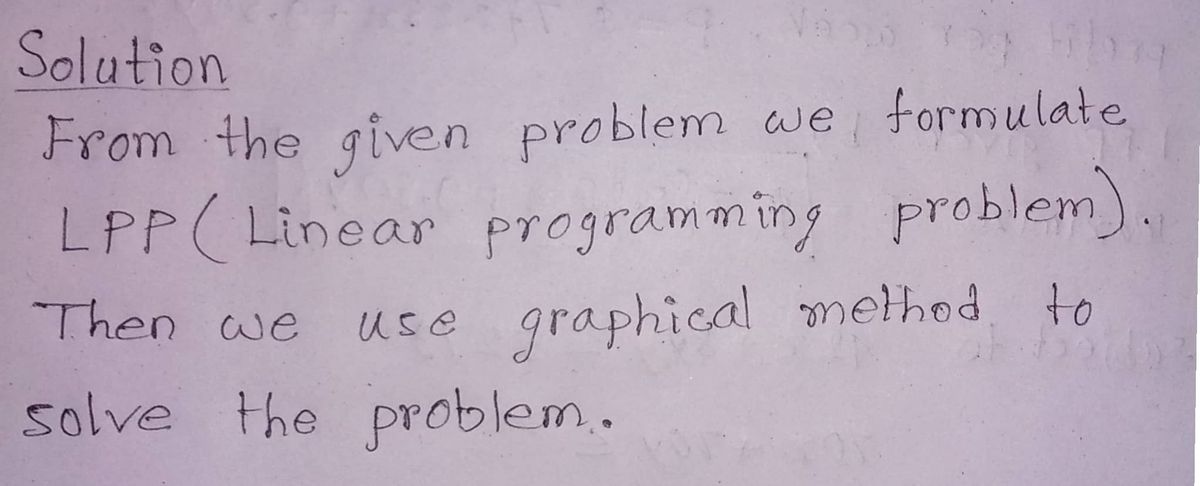 Solution
From the given problem we formulate
LPP ( Linear programming problem).
Then we use graphical method to
solve the problem.